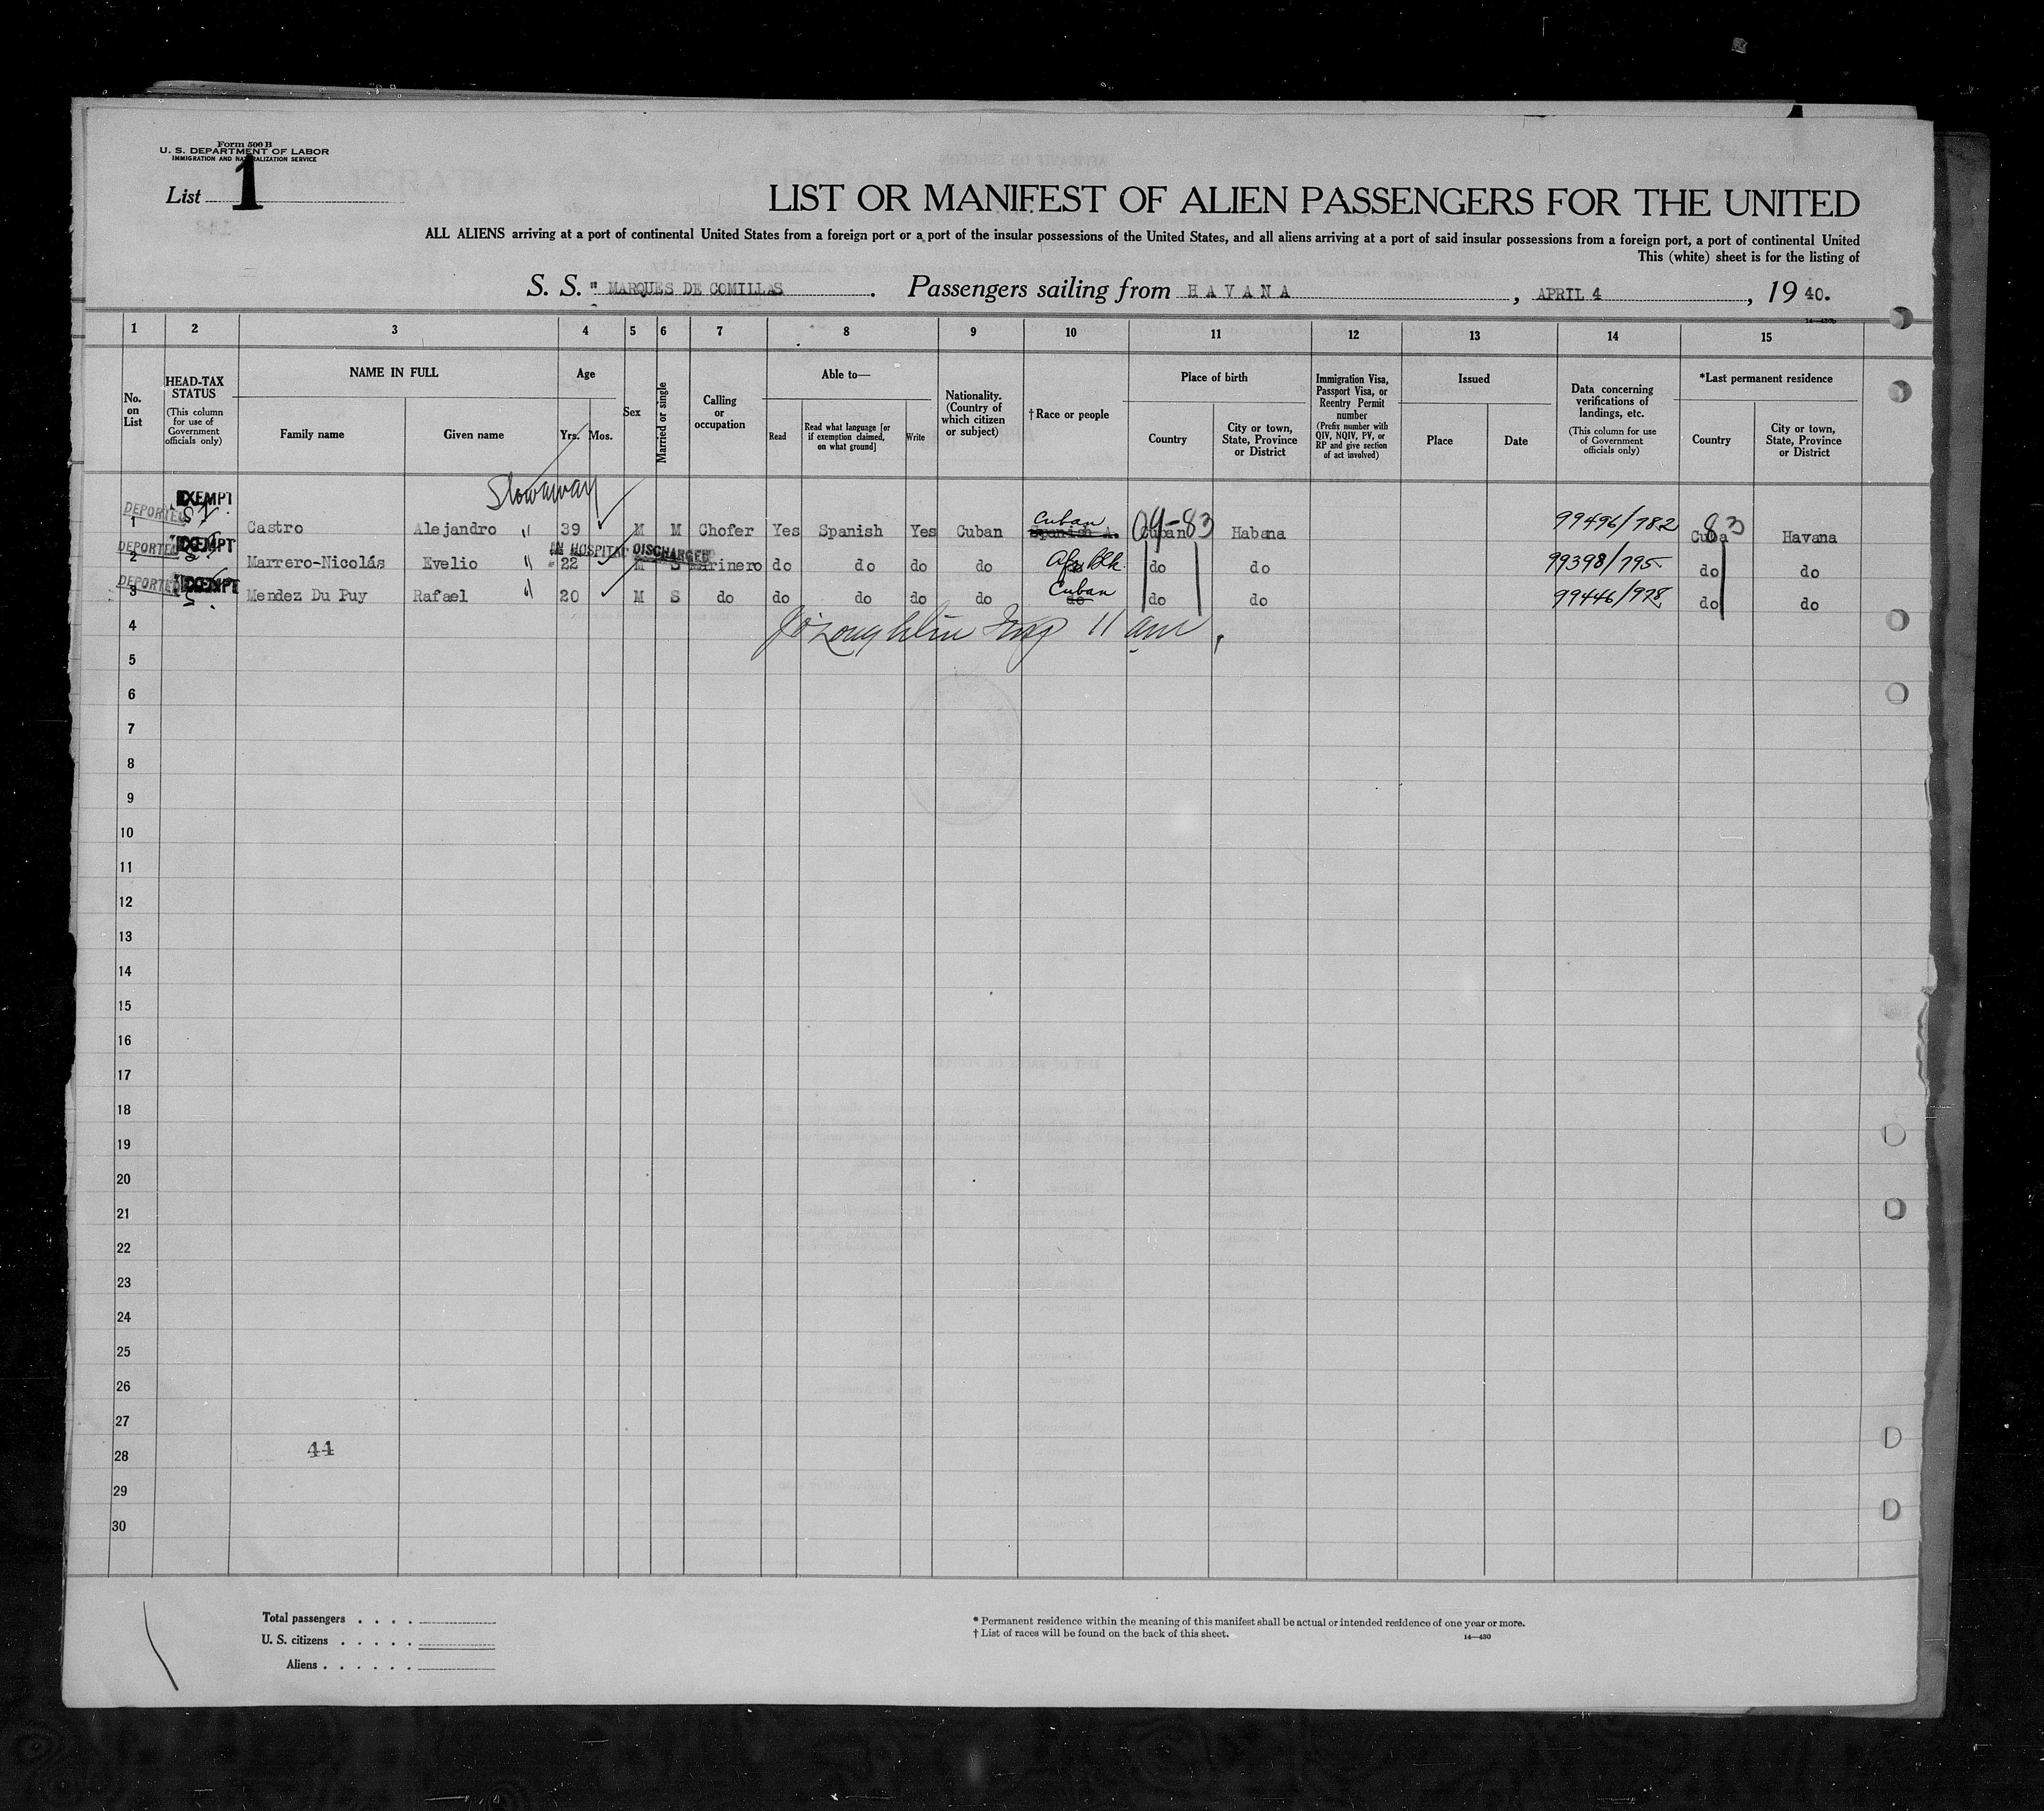 Form 500 B
U. S. DEPARTMENT OF LABOR
IMMIGRATION AND NATURALIZATION SERVICE
List 1
LIST OR MANIFEST OF ALIEN PASSENGERS FOR THE UNITED
ALL ALIENS arriving at a port of continental United States from a foreign port or a port of the insular possessions of the United States, and all aliens arriving at a port of said insular possessions from a foreign port, a port of continental United
This (white) sheet is for the listing of
S. S. " MARQUES DE COMILLAS . Passengers sailing from HAVANA , APRIL 4 , 19 40.
14—430b
1 2 3 4 5 6 7 8 9 10 11 12 13 14 15
No. on List
HEAD-TAX STATUS
(This column for use of Government officials only)
NAME IN FULL
Family name
Given name
Age
Yrs.
Mos.
Sex
Married or single
Calling or occupation
Able to—
Read
Read what language [or if exemption claimed, on what ground]
Write
Nationality. (Country of which citizen or subject)
† Race or people
Place of birth
Country
City or town, State, Province or District
Immigration Visa, Passport Visa, or Reentry Permit number
(Prefix number with QIV, NQIV, PV, or RP and give section of act involved)
Issued
Place
Date
Data concerning verifications of landings, etc.
(This column for use of Government officials only)
*Last permanent residence
Country
City or town, State, Province or District
Stowaway
DEPORTED EXEMPT
1 Castro Alejandro " 39 M M Chofer Yes Spanish Yes Cuban Spanish A. Cuban Cuban 04-83 Habana 99496/782 Cuba 83 Havana
DEPORTED EXEMPT IN HOSPITAL DISCHARGED
2 Marrero-Nicolás Evelio " 22 M S Marinero do do do do Afr Blk. do do 99398/795 do do
DEPORTED EXEMPT
3 Mendez Du Puy Rafael " 20 M S do do do do do Cuban do do do 99446/978 do do
4 11 am
5
6
7
8
9
10
11
12
13
14
15
16
17
18
19
20
21
22
23
24
25
26
27
28 44
29
30
Total passengers . . . .
U. S. citizens . . . . .
Aliens . . . . . .
* Permanent residence within the meaning of this manifest shall be actual or intended residence of one year or more.
† List of races will be found on the back of this sheet.
14—430